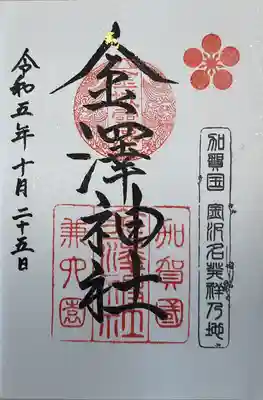 加賀国 金沢名発祥乃地
金澤神社
加賀國
兼六園
令和五年十月二十五日